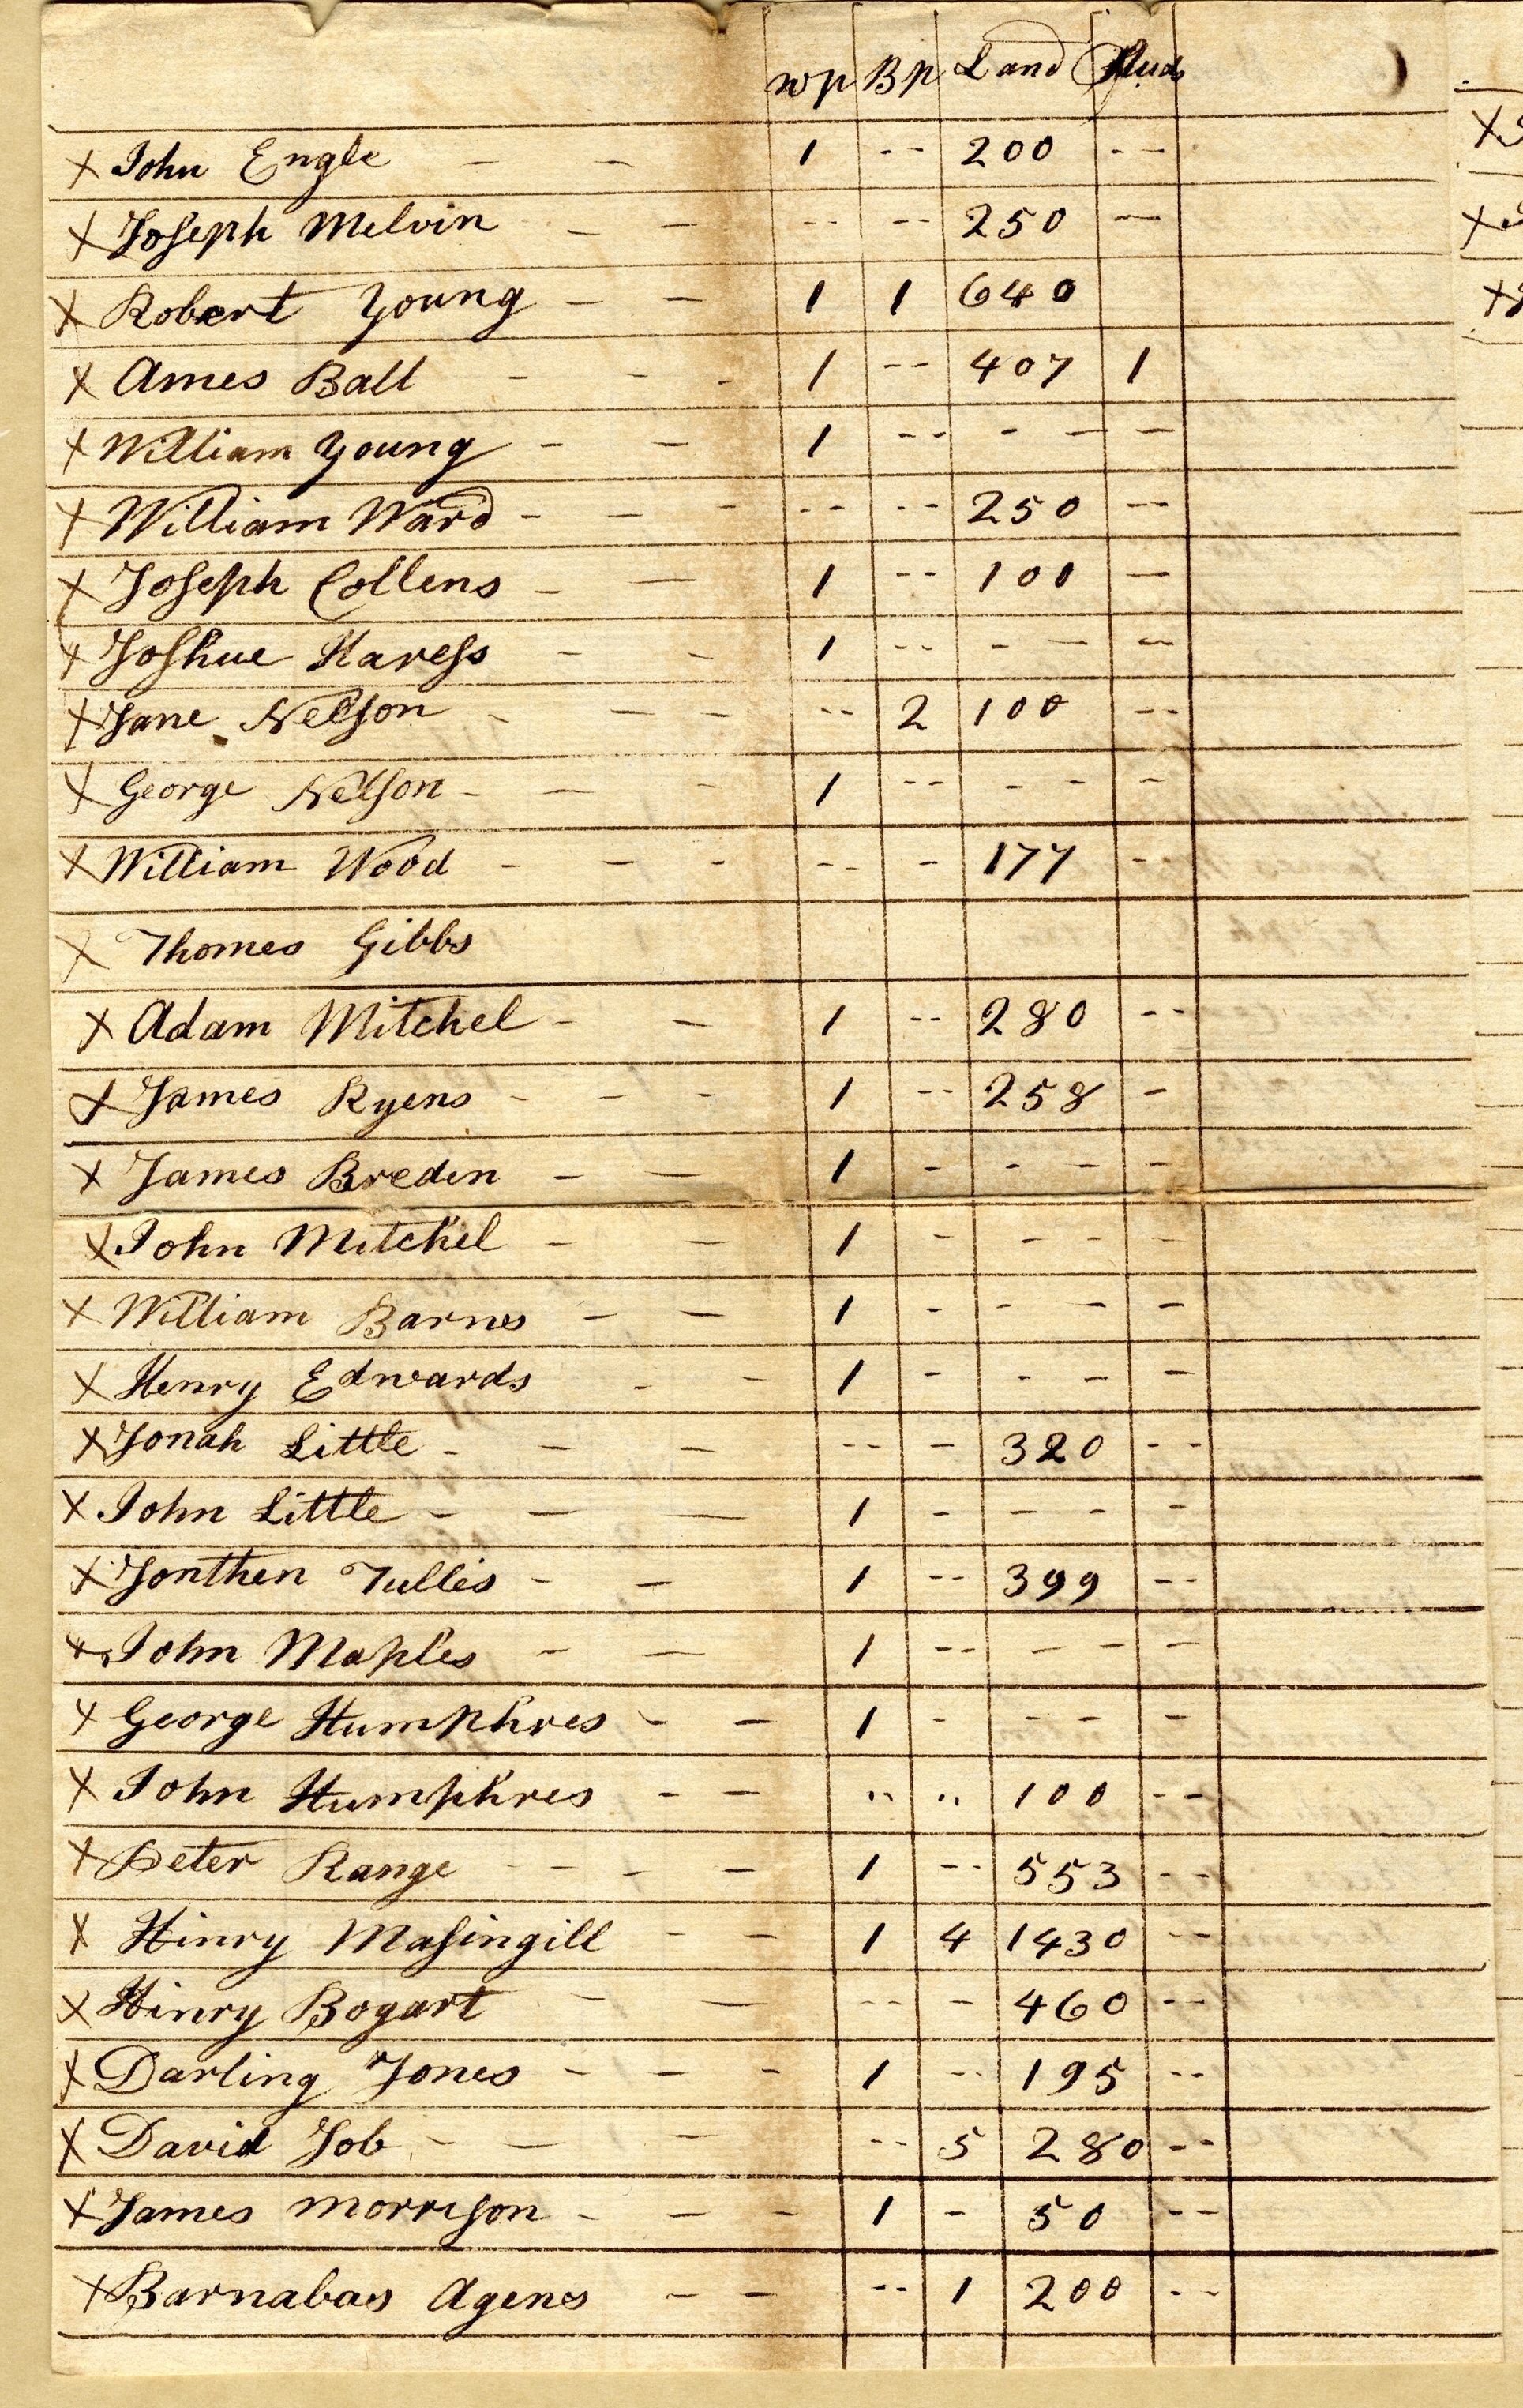 wp Bp Land Studs
X John Engle - - 1 -- 200 --
X Joseph Melvin - - -- -- 250 --
X Robert Young - - 1 1 640
X Ames Ball - - - 1 -- 407 1
X William Young - - 1 -- - - -
X William Ward - - - -- -- 250 --
X Joseph Collens - - 1 -- 100 --
X Joshue Haress - - 1 -- - - --
X Jane Nelson - - - -- 2 100 --
X George Nelson - - - 1 -- - - -
X William Wood - - - -- - 177 --
X Thomes Gibbs
X Adam Mitchel - - 1 -- 280 --
X James Ryens - - - 1 -- 258 -
X James Breden - - 1 - - - -
X John Mitchel - - 1 - - - -
X William Barnes - - 1 - - - -
X Henry Edwards - - 1 - - - -
X Jonah Little - - - -- - 320 --
X John Little - - - 1 - - - -
X Jonthen Tullis - - 1 -- 399 --
X John Maples - - 1 -- - - -
X George Humphres - - 1 - - - -
X John Humphres - - -- -- 100 --
X Peter Range - - - - 1 -- 553 --
X Hinry Masingill - - 1 4 1430 --
X Hinry Bogart - - -- - 460 --
X Darling Jones - - - 1 -- 195 --
X David Job - - - -- 5 280 --
X James Morrison - - - 1 - 50 --
X Barnabas Agens - - -- 1 200 --